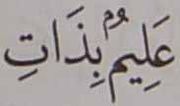 عَلِيمُۢ بِذَاتِ